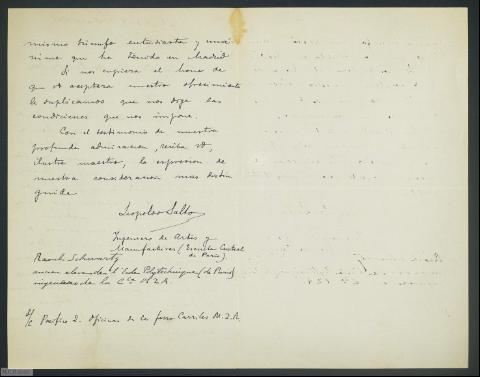 mismo triunfo entusiasta y uná-
nime que ha tenido en Madrid
Si nos cupiera el honor de
que Vd aceptara nuestro ofrecimiento
le suplicamos que nos diga las
condiciones que nos impone.
Con el testimonio de nuestra
profunda admiración, reciba Vd,
ilustre maestro, la expresion de
nuestra consideración mas distin
guida
Leopoldo Salto
Ingeniero de Artes y
Manufacturas (Escuela Central
de Paris)
Raoul Schwartz
ancien élève de l'Ecole Polytechnique (de Paris)
ingeniero de la Cia M Z A.
s/c Pacifico 2. Oficinas de los ferro Carriles M. Z. A.